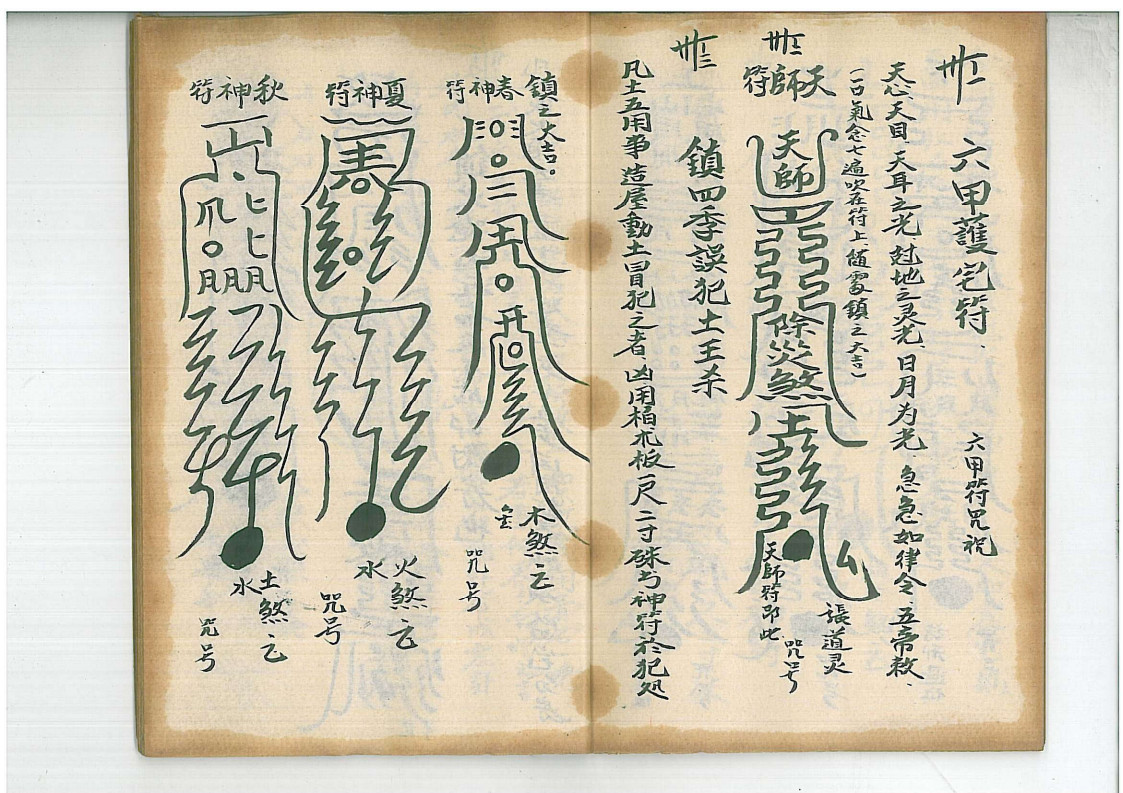 卅一
六甲護宅符、
六甲符咒祝
天心、天目、天耳之光、尅地之灵光、日月为光、急急如律令、五帝敕、
(一口氣念七遍吹在符上、隨處鎮之大吉)
卅二
天師符
天師
除災煞
張道灵
咒号
天師符即此
卅三
鎮四季誤犯土王杀
凡土五用事造屋動土冒犯之者、凶用柏木板一尺二寸硃书神符於犯処
鎮之大吉。
春神符
木煞云
咒号
夏神符
火煞云
水
咒号
秋神符
土煞云
水
咒号